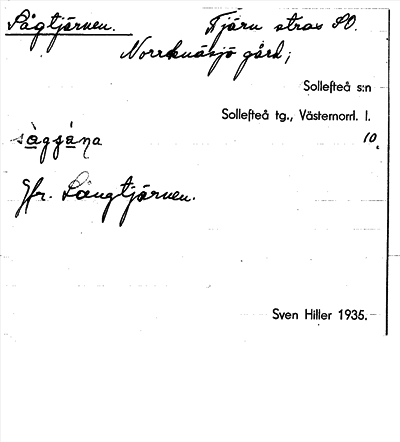 Sågtjärnen. Tjärn strax SO.
Norrknäsjö gård;
Sollefteå s:n
Sollefteå tg., Västernorrl. l.
10.
Jfr. Långtjärnen.
Sven Hiller 1935.